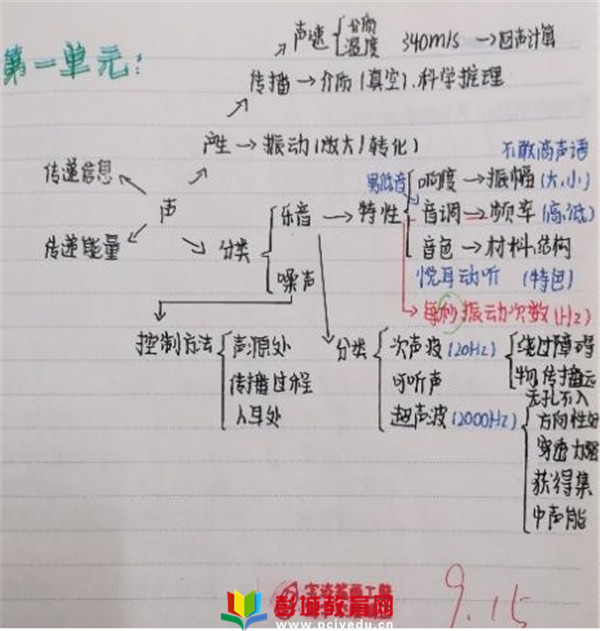 第一单元:
声速 介质 温度 340m/s → 回声计算
传播 → 介质(真空).科学推理
产生 → 振动(放大/转化)
不敢高声语
传递信息
声
传递能量
分类
乐音 → 特性
噪声
男低音
响度 → 振幅(大、小)
音调 → 频率(高、低)
音色 → 材料、结构
悦耳动听 (特色)
每秒振动次数(Hz)
控制方法
声源处
传播过程
人耳处
分类
次声波(20Hz)
可听声
超声波(2000Hz)
绕过障碍
物 传播远
无孔不入
方向性好
穿透力强
获得集
中声能
9.15
彭城教育网
www.pcjyedu.cn